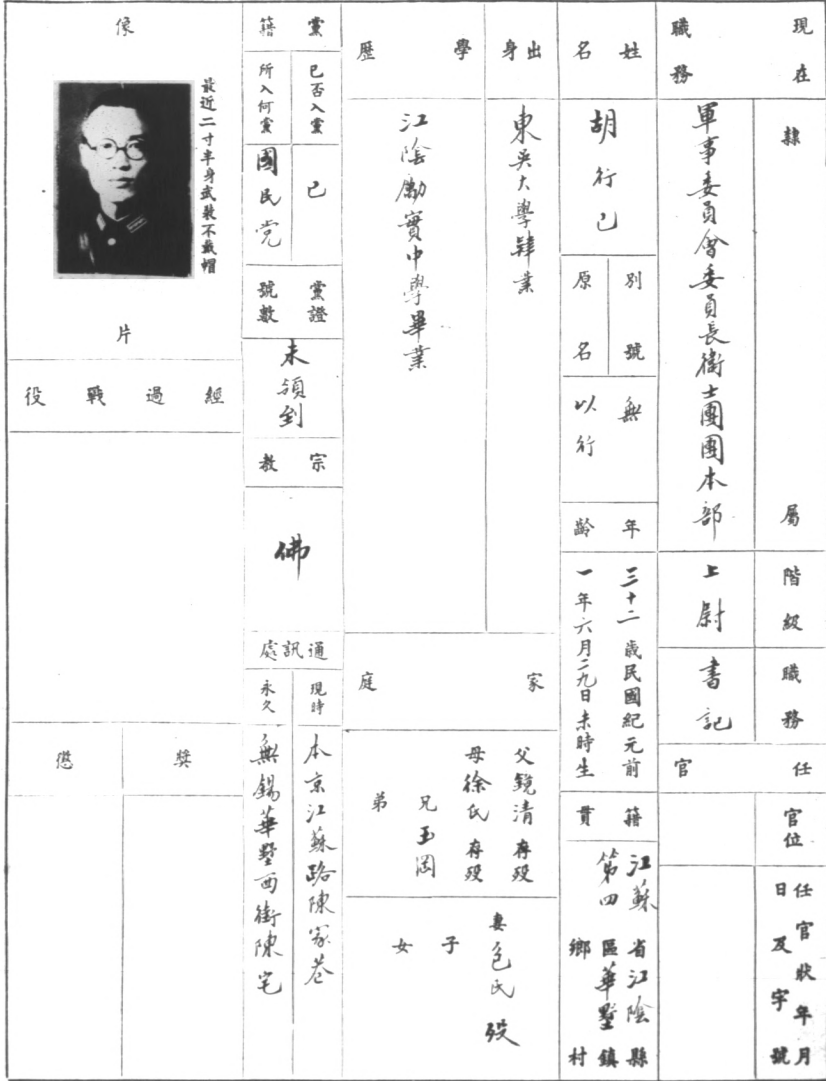 現在職務
隸屬
軍事委員會委員長衞士團團本部
階級
上尉
職務
書記
任官
官位
任官狀年月日及字號
姓名
胡行已
別號
無
原名
以行
年齡
三十二歲民國紀元前
一年六月二九日未時生
籍貫
江蘇省江陰縣
第四區華墅鎮
鄉村
出身
東吳大學肄業
學歷
江陰勵實中學畢業
家庭
父鏡清存殁
母徐氏存殁
兄玉岡
弟
妻包氏殁
子
女
黨籍
已否入黨
已
所入何黨
國民党
黨證號數
未領到
宗教
佛
通訊處
現時
本京江蘇路陳家巷
永久
無錫華墅西街陳宅
像片
最近二寸半身武裝不戴帽
經過戰役
獎
懲